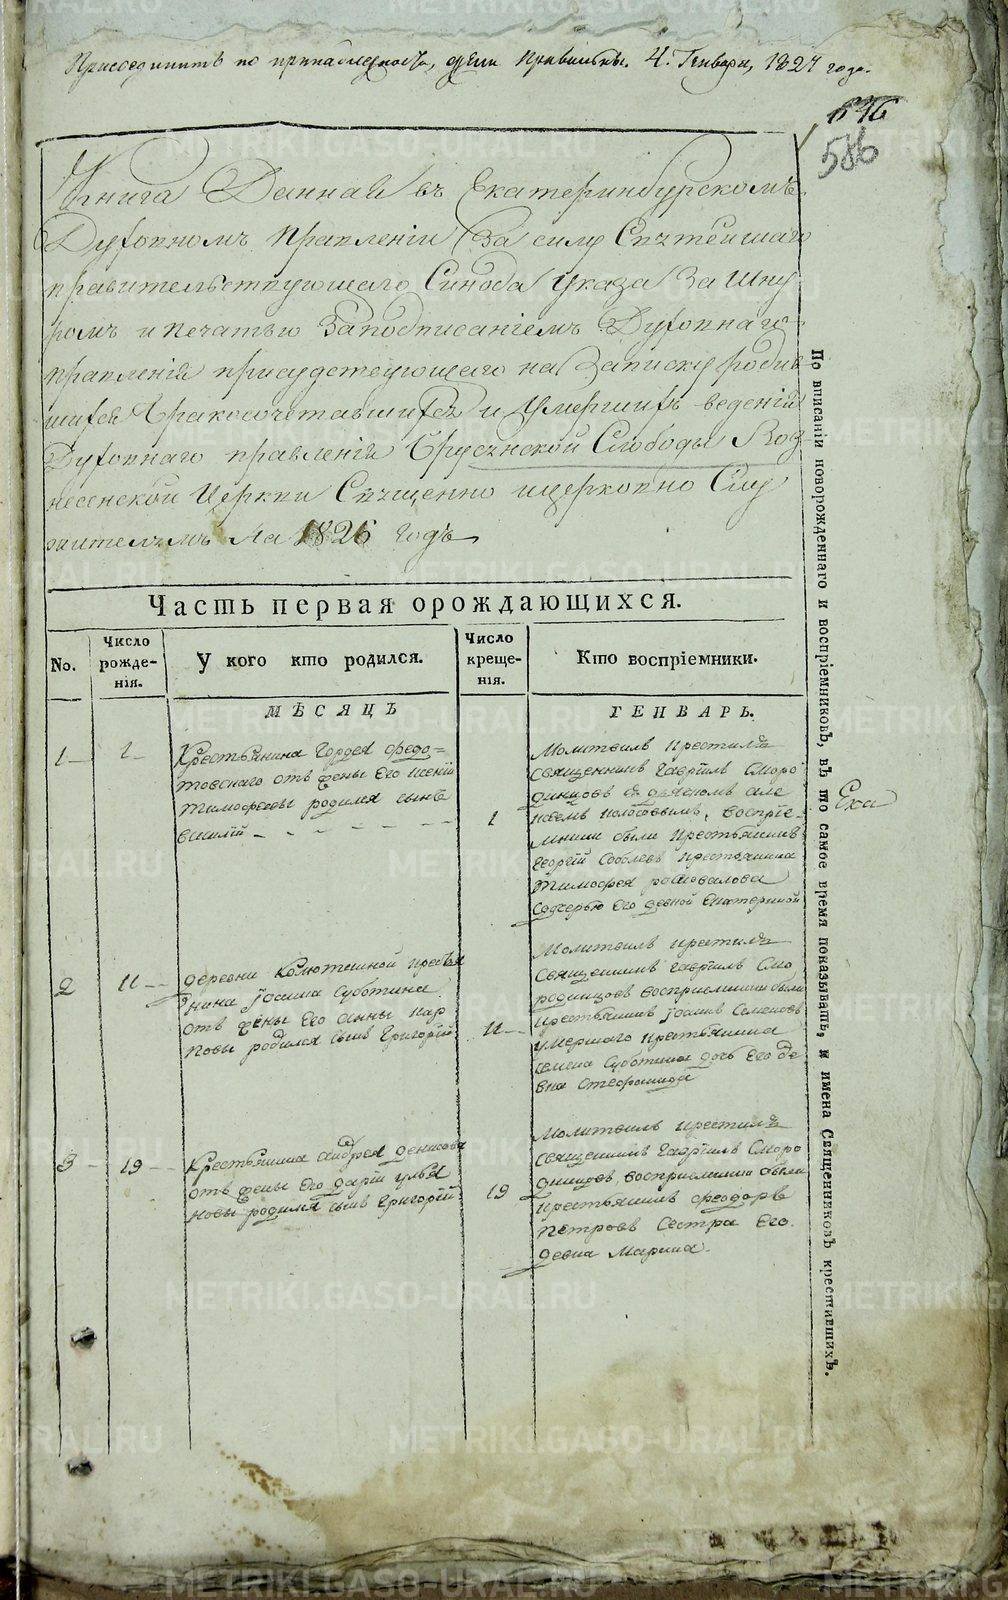 Присоединить по принадлежности, 4. Генваря, 1827 года.
646
586
Книга Данная въ Екатеринбурскомъ
Духовномъ Правленіи За силу Свѣтейшаго
правительствующаго Синода Указа За Шну
ромъ и печатью За подписаніемъ Духовнаго
правленія присудствующаго на Записку родив
шихся бракосочетавшихся и Умершихъ веденія
Духовнаго правленія Брусянской Слободы Воз
несенской Церкви Священно ицерковно Слу
жителямъ На 1826 годъ
Часть первая орождающихся.
No.
Число рожде-нія.
У кого кто родился.
Число креще-нія.
Кто воспріемники.
МѢСЯЦЪ
ГЕНВАРЬ.
1
1
Крестьянина Гордея Федо=
товскаго отъ жены Его Ксеніи
Тимофеевы родился сынъ
Василій
1
Молитвилъ Крестилъ
священникъ Гавріилъ Сморо
динцовъ съ дьякомъ Але
воспріе-
мники были Крестьянинъ
Георгій Соболевъ Крестьянина
Тимофея
Сдочерью Его девкой Екатериной
2
11
деревни Колюткиной Кресьтя
нина Іоакима Суботина
отъ жены Его Анны Кар
повы родился сынъ Григорій
11
Молитвилъ крестилъ
Священникъ Гавріилъ Смо
родинцовъ воспріемники были
крестьянинъ Семеновъ
умершаго Крестьянина
семена Суботина дочь Его де
вка Стефанида
3
19
Крестьянина Андрея Денисова
отъ жены Его Дарьи Улья
новы родился сынъ Григорій
19
Молитвилъ крестилъ
Священникъ Гавріилъ Сморо
динцовъ воспріемники были
крестьянинъ Феодоръ
Петровъ Сестра Его
девка Марина.
По вписаніи новорожденнаго и воспріемниковъ, въ то самое время показывать, и имена Священниковъ крестившихъ.
METRIKI.GASO-URAL.RU